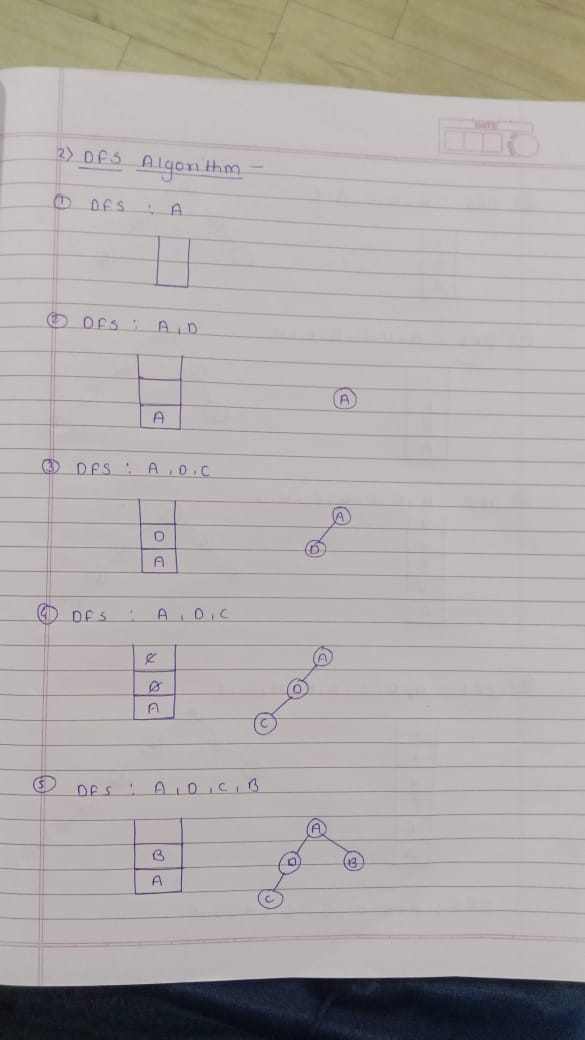 DATE
2) DFS Algorithm -
① DFS : A
② DFS : A, D
A
A
③ DFS : A, D, C
D
A
A
D
④ DFS : A, D, C
C
D
A
A
D
C
⑤ DFS : A, D, C, B
B
A
A
D
B
C